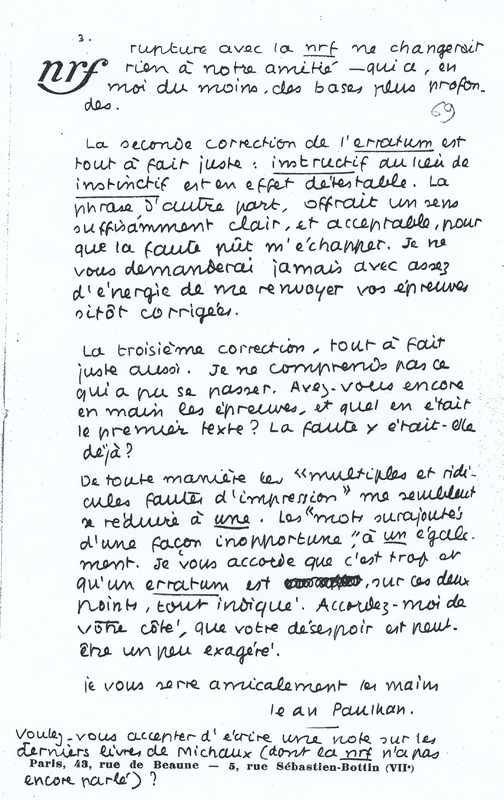 3.
nrf
rupture avec la nrf ne changerait
rien à notre amitié — qui a, en
moi du moins, des bases plus profon-
des.
69
La seconde correction de l'erratum est
tout à fait juste : instructif au lieu de
instinctif est en effet détestable. La
phrase, d'autre part, offrait un sens
suffisamment clair, et acceptable, pour
que la faute pût m'échapper. Je ne
vous demanderai jamais avec assez
d'énergie de me renvoyer vos épreuves
sitôt corrigées.
La troisième correction, tout à fait
juste aussi. Je ne comprends pas ce
qui a pu se passer. Avez-vous encore
en main les épreuves, et quel en était
le premier texte ? La faute y était-elle
déjà ?
De toute manière les "multiples et ridi-
cules fautes d'impression" me semblent
se réduire à une. Les "mots surajoutés
d'une façon inopportune", à un égale-
ment. Je vous accorde que c'est trop et
qu'un erratum est , sur ces deux
points, tout indiqué. Accordez-moi de
votre côté, que votre désespoir est peut-
être un peu exagéré.
je vous serre amicalement les mains
Jean Paulhan.
Voulez-vous accepter d'écrire une note sur les
derniers livres de Michaux (dont la nrf n'a pas
Paris, 43, rue de Beaune — 5, rue Sébastien-Bottin (VIIe)
encore parlé) ?